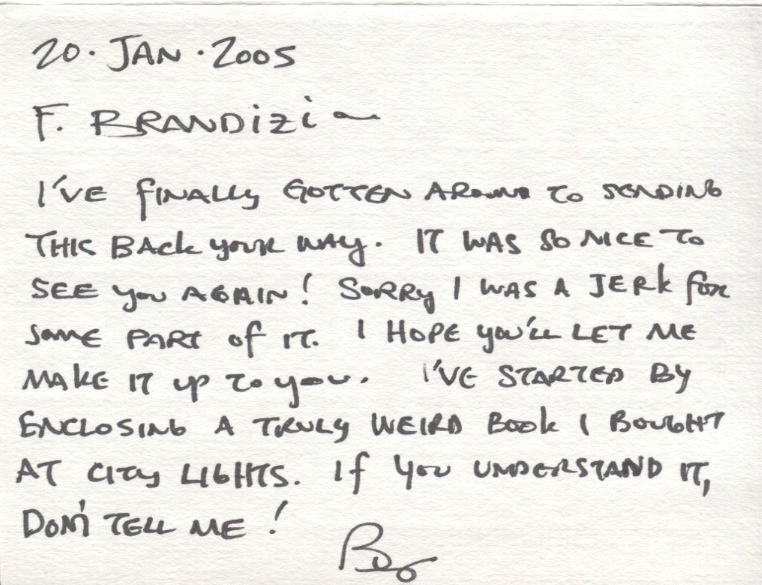 20. JAN. 2005
F. BRANDIZI –
I'VE FINALLY GOTTEN AROUND TO SENDING
THIS BACK YOUR WAY. IT WAS SO NICE TO
SEE YOU AGAIN! SORRY I WAS A JERK FOR
SOME PART OF IT. I HOPE YOU'LL LET ME
MAKE IT UP TO YOU. I'VE STARTED BY
ENCLOSING A TRULY WEIRD BOOK I BOUGHT
AT CITY LIGHTS. IF YOU UNDERSTAND IT,
DON'T TELL ME!